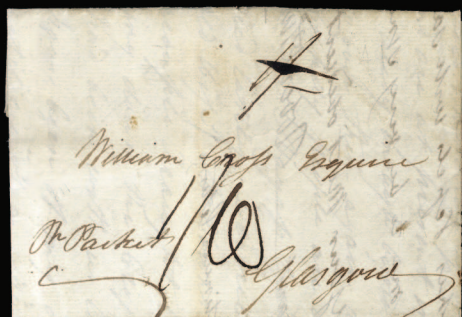 1/-
William Cross Esquire
Pr Packet
1/10
Glasgow